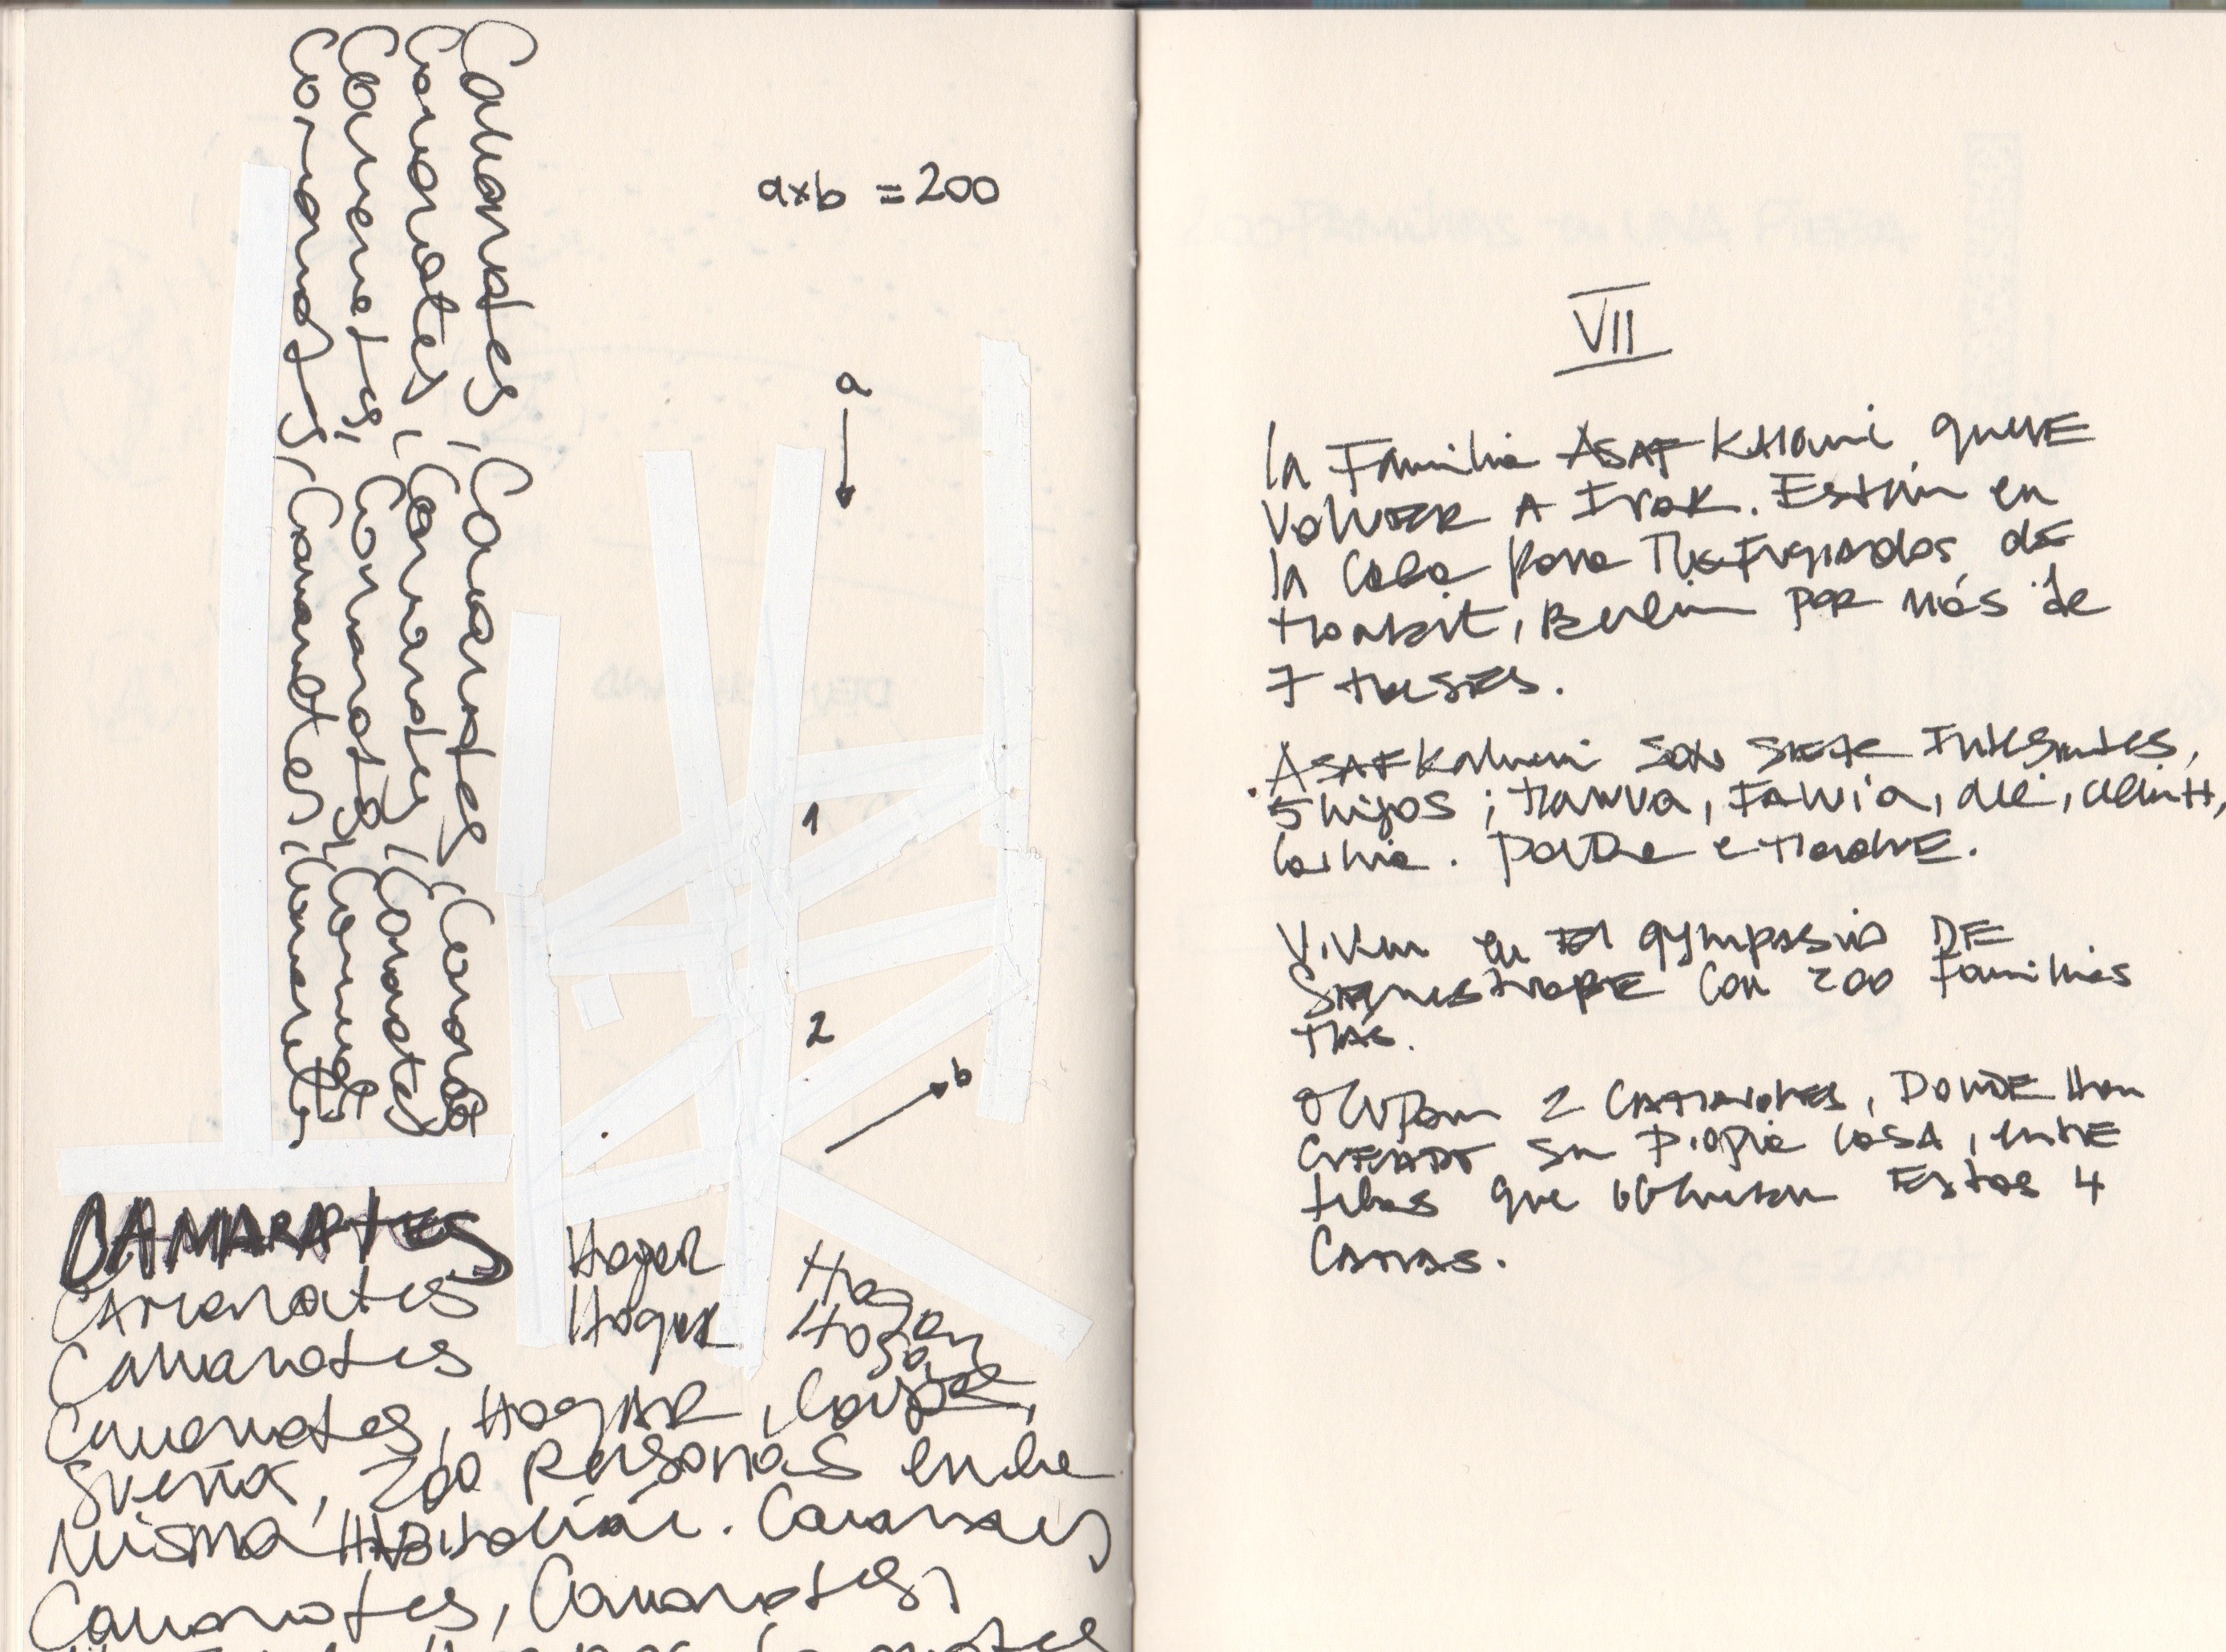 Camarotes, Camarotes, Camarotes
Camarotes, Camarotes, Camarotes
Camarotes, Camarotes, Camarotes
Camarotes, Camarotes, Camarotes
axb = 200
a
1
2
b
CAMAROTES
Camarotes
Camarotes
Hogar
Hogar
Hogar
Hogar
Camarotes, HOGAR,
200 personas en la
misma Habitación. Camarotes
Camarotes, Camarotes,
VII
la Familia ASAF KHani quiere
VolvER A Irak. Están en
la Casa para Refugiados de
, Berlin por más de
7 meses.
ASAF Kahani son siete Integrantes,
5 hijos ; Marwa, , ali, ,
. Padre e Madre.
Viven en El gympasio DE
con 200 Familias
Más.
Ocupan 2 Camarotes, DONDE Han
CreADO su propia casA, entre
telas que Estas 4
CAMAS.